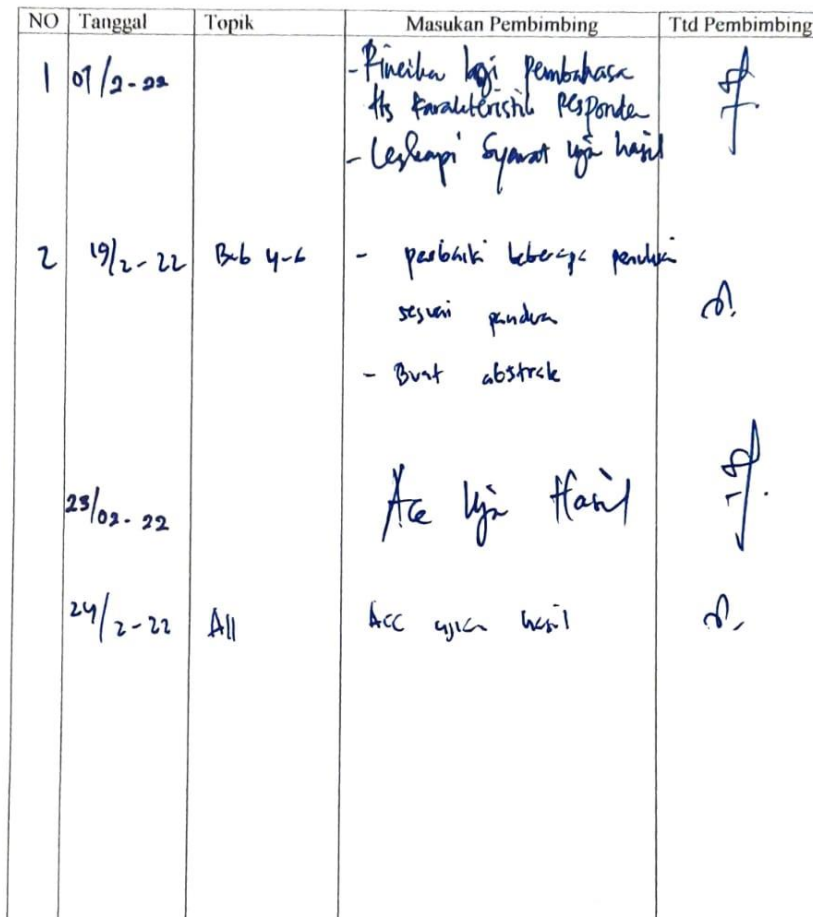 NO Tanggal Topik Masukan Pembimbing Ttd Pembimbing
1 07/2-22 - Rincikan lagi Pembahasa
Hs Karakteristik Responden
- Lengkapi Syarat Uji hasil
2 19/2-22 Bab 4-6 - perbaiki beberapa penulisan
sesuai panduan
- Buat abstrak
23/02-22 Acc Uji Hasil
24/2-22 All Acc ujian hasil